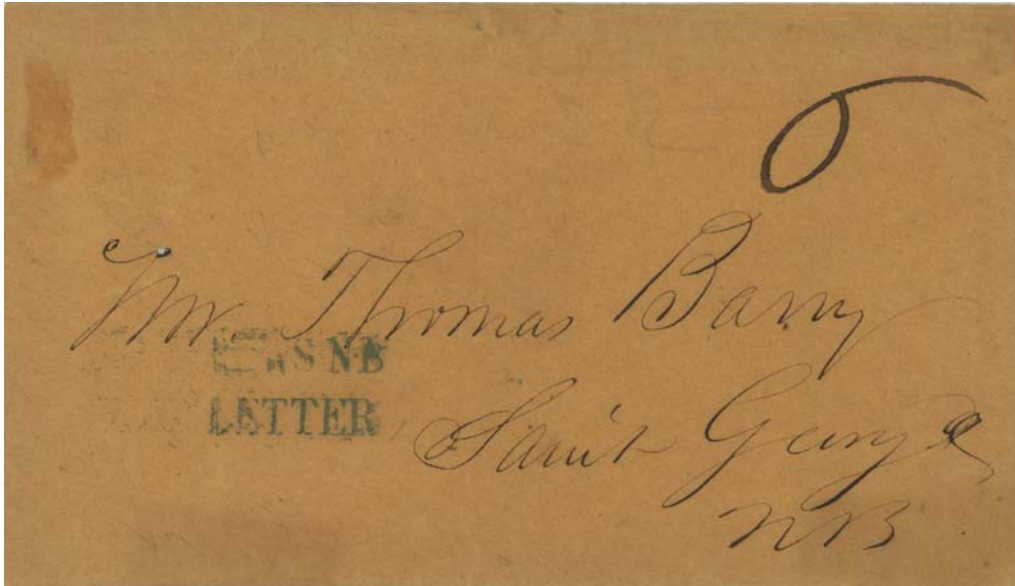 6
Mr. Thomas Barry
NB
LETTER
Saint George
NB